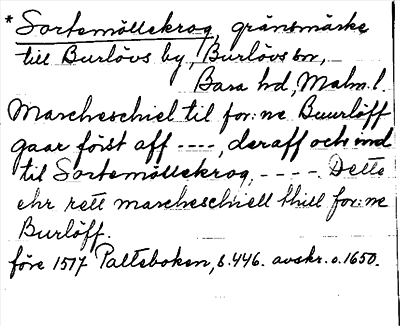 * Sortemöllekrog, gränsmärke
till Burlövs by, Burlövs sn,
Bara hd, Malm. l.
Marcheschiel til for:ne Buurlöff
gaar först aff ----, deraff och ind
til Sortemöllekrog, - - - - Dette
ehr rett marcheschiell thill for:ne
Burlöff.
före 1517 Palteboken, s. 446. avskr. o. 1650.